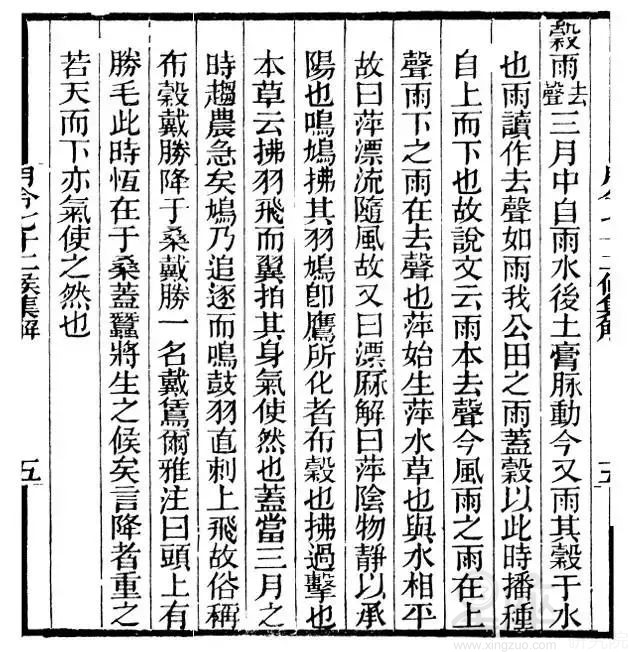 月令七十二候集解
五
穀雨去聲三月中自雨水後土膏脉動今又雨其穀于水
也雨讀作去聲如雨我公田之雨蓋穀以此時播種
自上而下也故說文云雨本去聲今風雨之雨在上
聲雨下之雨在去聲也萍始生萍水草也與水相平
故曰萍漂流隨風故又曰漂厤解曰萍陰物靜以承
陽也鳴鳩拂其羽鳩卽鷹所化者布穀也拂過擊也
本草云拂羽飛而翼拍其身氣使然也蓋當三月之
時趨農急矣鳩乃追逐而鳴鼓羽直刺上飛故俗稱
布穀戴勝降于桑戴勝一名戴鵀爾雅注曰頭上有
勝毛此時恆在于桑蓋蠶將生之候矣言降者重之
若天而下亦氣使之然也
月令七十二候集解
五
www.xingzuo.com